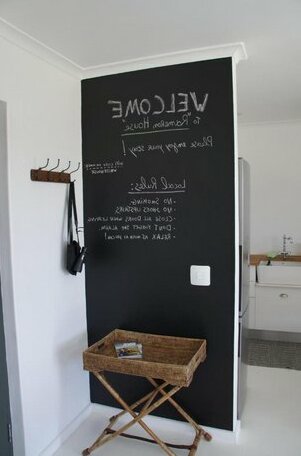 WELCOME
TO "Ramellon House"
Please enjoy your stay!
Local Rules:
-NO SMOKING.
-NO SHOES UPSTAIRS.
-CLOSE ALL DOORS WHEN LEAVING
-DON'T FORGET THE ALARM.
-RELAX